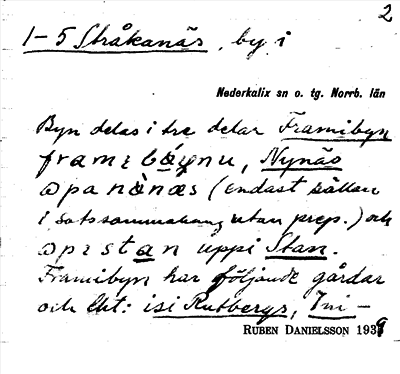 2
1-5 Stråkanäs, by i
Nederkalix sn o. tg. Norrb. län
Byn delas i tre delar Framibyn
Nynäs
(endast sällan
i satssammanhang utan prep.) och
uppi Stan.
Framibyn har följande gårdar
och lht: isi Rutbergs, Ini-
RUBEN DANIELSSON 1939